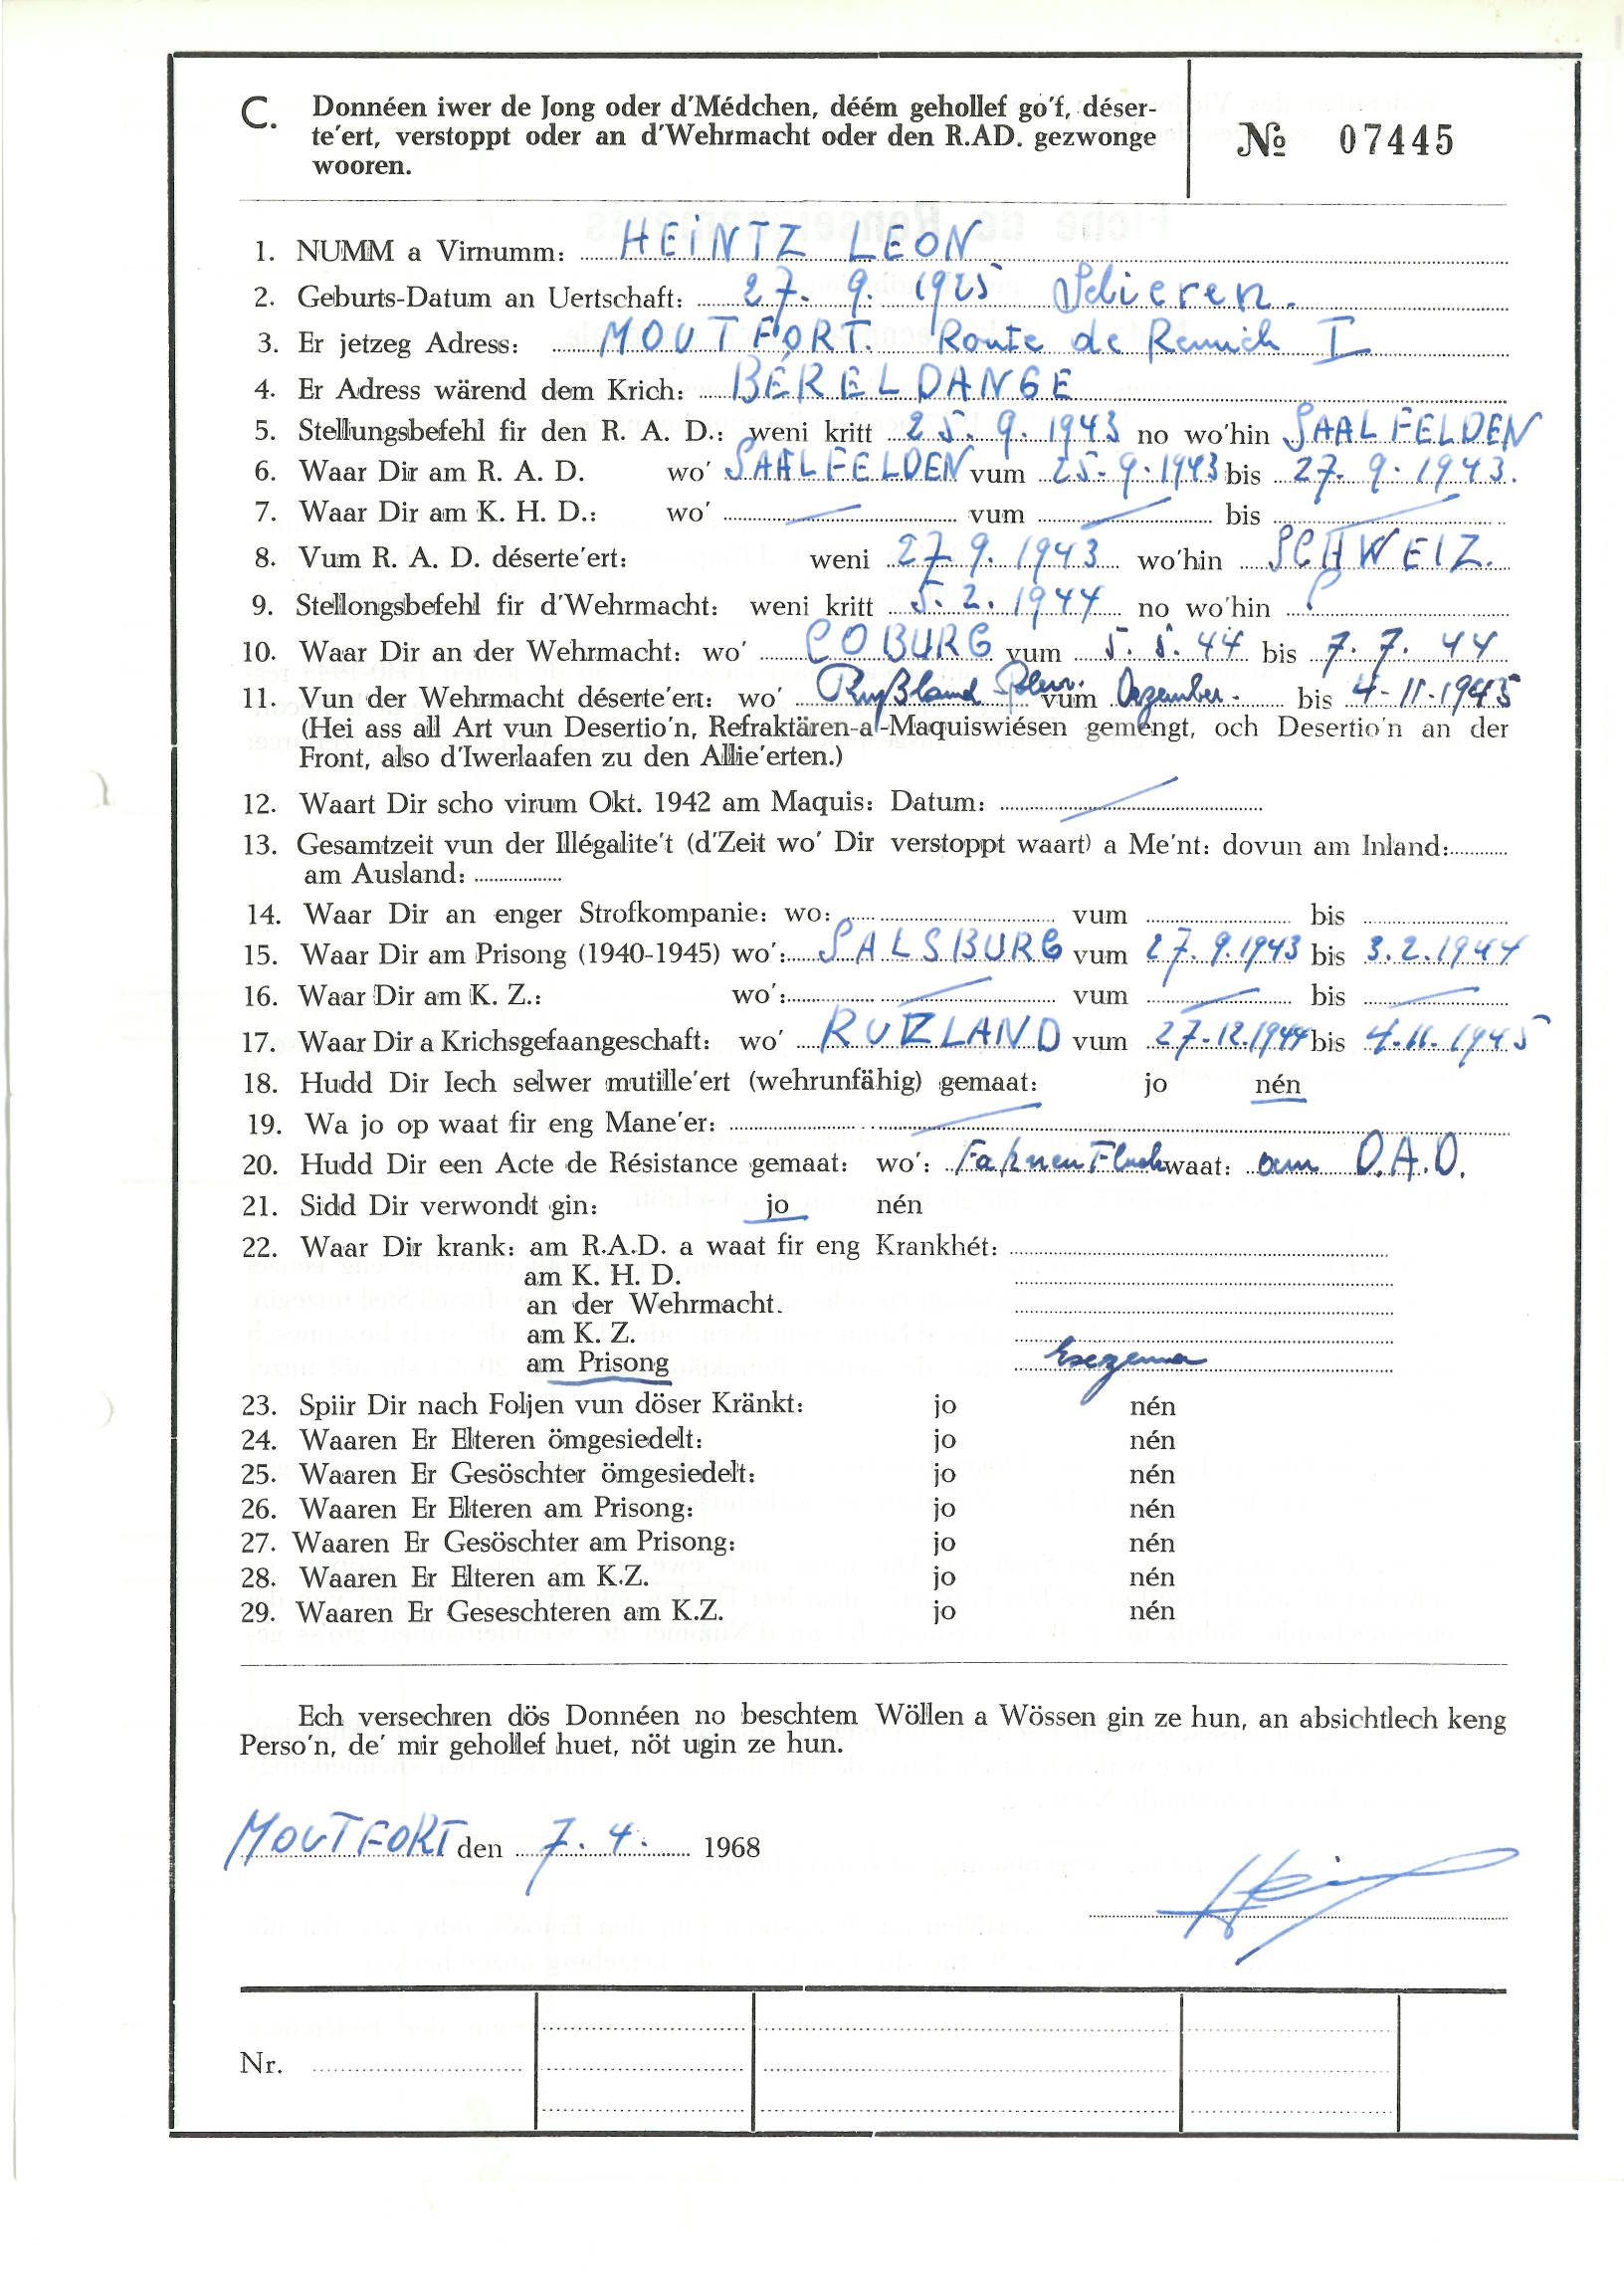 C. Donnéen iwer de Jong oder d'Médchen, déém gehollef go'f, déser-
te'ert, verstoppt oder an d'Wehrmacht oder den R.AD. gezwonge
wooren.
№ 07445
1. NUMM a Virnumm: HEINTZ LEON
2. Geburts-Datum an Uertschaft: 27. 9. 1925 Schieren.
3. Er jetzeg Adress: MOUTFORT. Route de Remich I
4. Er Adress wärend dem Krich: BÉRELDANGE
5. Stellungsbefehl fir den R. A. D.: weni kritt 25. 9. 1943 no wo'hin SAALFELDEN
6. Waar Dir am R. A. D. wo' SAALFELDEN vum 25.9.1943 bis 27. 9. 1943.
7. Waar Dir am K. H. D.: wo' vum bis
8. Vum R. A. D. déserte'ert: weni 27 9. 1943 wo'hin SCHWEIZ.
9. Stellongsbefehl fir d'Wehrmacht: weni kritt 5. 2. 1944 no wo'hin
10. Waar Dir an der Wehrmacht: wo' COBURG vum 5. 5. 44 bis 7. 7. 44
11. Vun der Wehrmacht déserte'ert: wo' Rußland Polen. vum Dezember - bis 4-11-1945
(Hei ass all Art vun Desertio'n, Refraktären-a-Maquiswiésen gemengt, och Desertio'n an der
Front, also d'Iwerlaafen zu den Allie'erten.)
12. Waart Dir scho virum Okt. 1942 am Maquis: Datum:
13. Gesamtzeit vun der Illégalite't (d'Zeit wo' Dir verstoppt waart) a Me'nt: dovun am Inland:
am Ausland:
14. Waar Dir an enger Strofkompanie: wo: vum bis
15. Waar Dir am Prisong (1940-1945) wo': SALSBURG vum 27. 9. 1943 bis 3. 2. 1944
16. Waar Dir am K. Z.: wo': vum bis
17. Waar Dir a Krichsgefaangeschaft: wo' RUZLAND vum 27.12.1944 bis 4.11.1945
18. Hudd Dir Iech selwer mutille'ert (wehrunfähig) gemaat: jo nén
19. Wa jo op waat fir eng Mane'er:
20. Hudd Dir een Acte de Résistance gemaat: wo': Fahnenflucht waat: am O.A.D.
21. Sidd Dir verwondt gin: jo nén
22. Waar Dir krank: am R.A.D. a waat fir eng Krankhét:
am K. H. D.
an der Wehrmacht.
am K. Z.
am Prisong Exezema
23. Spiir Dir nach Foljen vun döser Kränkt: jo nén
24. Waaren Er Elteren ömgesiedelt: jo nén
25. Waaren Er Gesöschter ömgesiedelt: jo nén
26. Waaren Er Elteren am Prisong: jo nén
27. Waaren Er Gesöschter am Prisong: jo nén
28. Waaren Er Elteren am K.Z. jo nén
29. Waaren Er Geseschteren am K.Z. jo nén
Ech versechren dös Donnéen no beschtem Wöllen a Wössen gin ze hun, an absichtlech keng
Perso'n, de' mir gehollef huet, nöt ugin ze hun.
MOUTFORT den 7. 4. 1968
Nr.